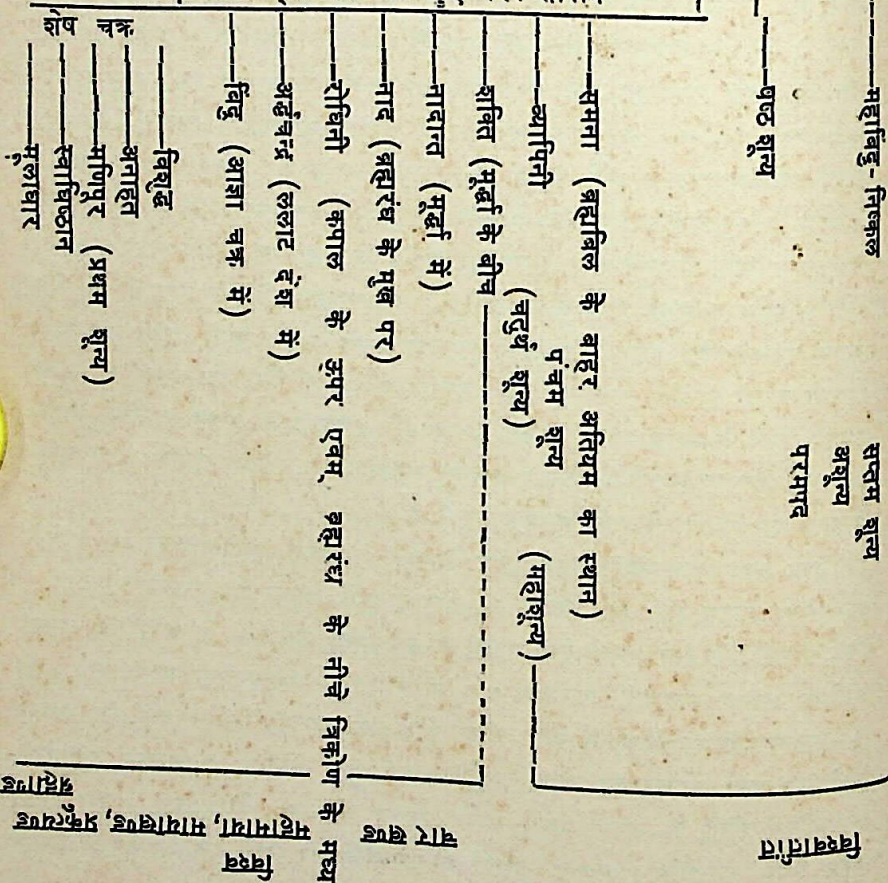 महाबिंदु- निष्कल
सप्तम शून्य
अशून्य
परमपद
षष्ठ शून्य
समना (ब्रह्मबिल के बाहर अतियम का स्थान)
पंचम शून्य
व्यापिनी
(चतुर्थ शून्य)
(महाशून्य)
शक्ति (मूर्द्धा के बीच
नादान्त (मूर्द्धा में)
नाद (ब्रह्मरंध्र के मुख पर)
रोधिनी (कपाल के ऊपर एवम् ब्रह्मरंध्र के नीचे त्रिकोण के मध्य
अर्द्धचन्द्र (ललाट दंश में)
बिंदु (आज्ञा चक्र में)
विशुद्ध
शेष चक्र
अनाहत
मणिपूर (प्रथम शून्य)
स्वाधिष्ठान
मूलाधार
विश्वातीत
चार खण्ड
विश्व
महामाया, मायाखण्ड, प्रकृत्यण्ड
ब्रह्माण्ड